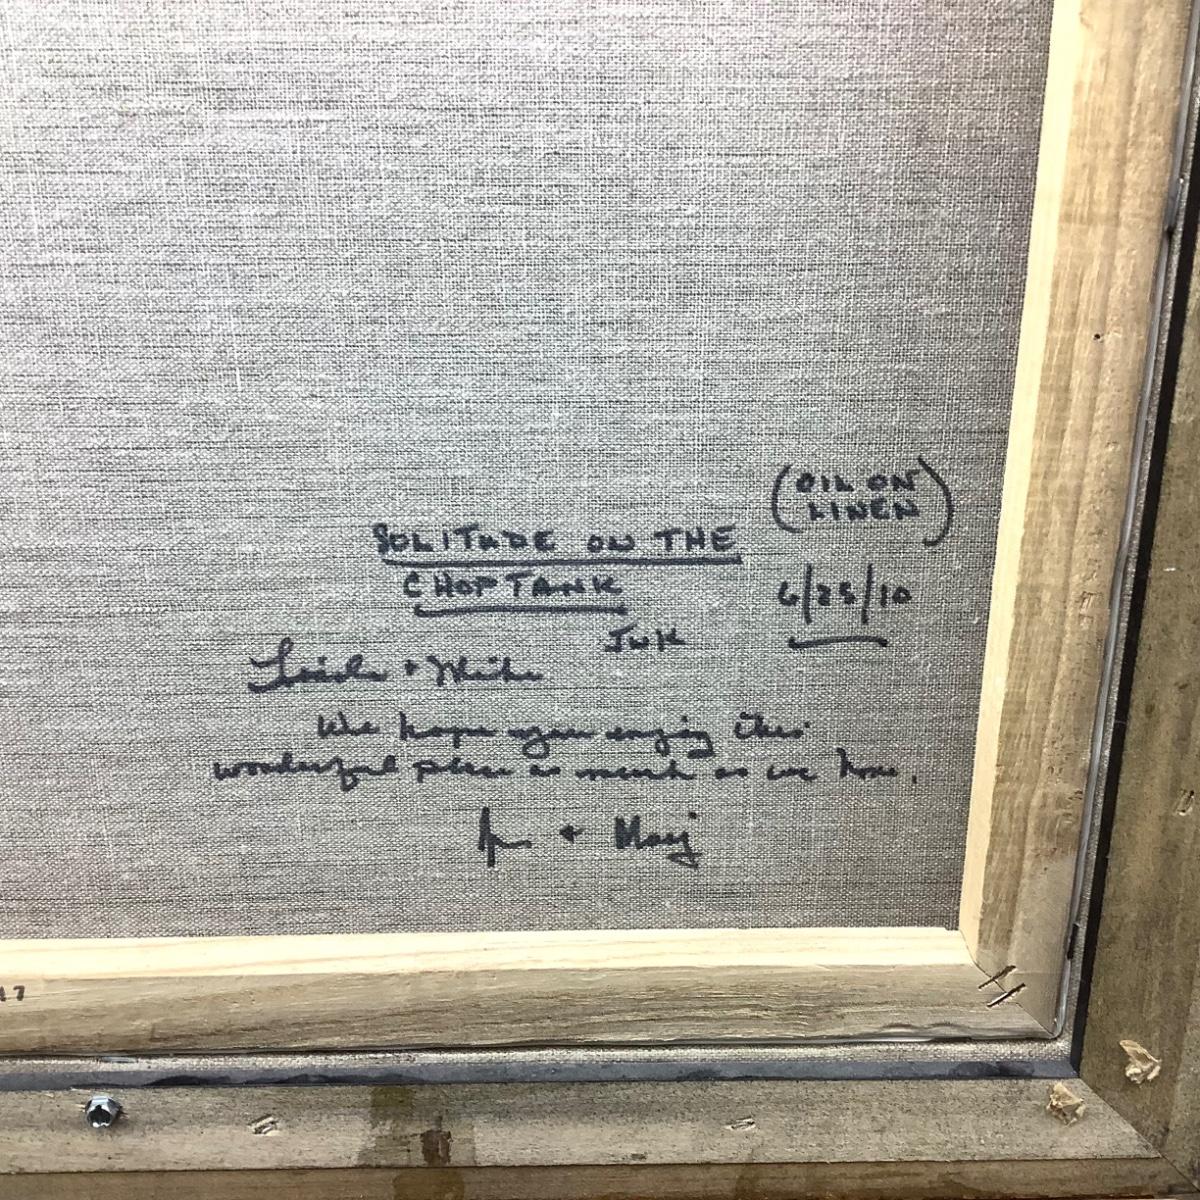 (OIL ON
LINEN)
SOLITUDE ON THE
CHOPTANK
6/25/10
JWK
Linda + Mike
We hope you enjoy this
wonderful place as much as we have.
+ Marj
17